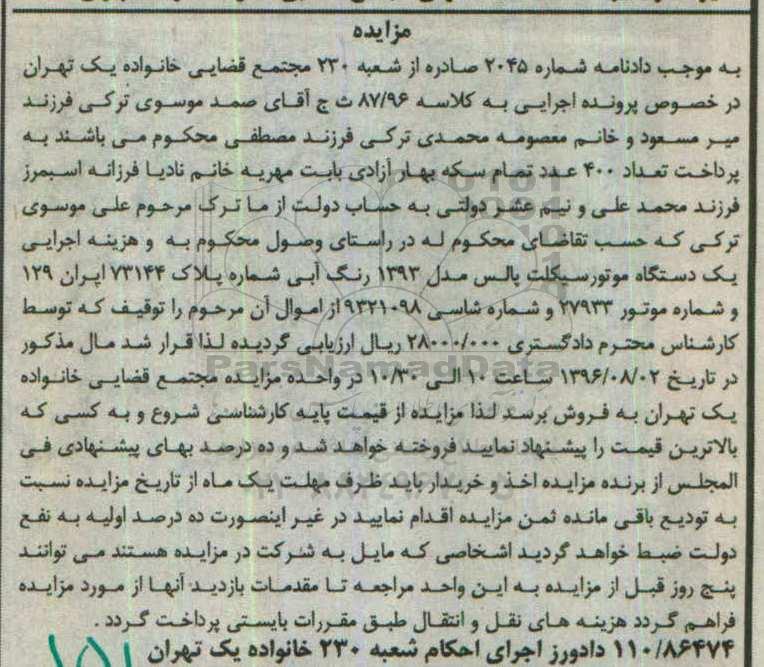 مزایده
به موجب دادنامه شماره ۲۰۴۵ صادره از شعبه ۲۳۰ مجتمع قضایی خانواده یک تهران
در خصوص پرونده اجرایی به کلاسه ۸۷/۹۶ ث ج آقای صمد موسوی ترکی فرزند
میر مسعود و خانم معصومه محمدی ترکی فرزند مصطفی محکوم می باشند به
پرداخت تعداد ۴۰۰ عدد تمام سکه بهار آزادی بابت مهریه خانم نادیا فرزانه اسبمرز
فرزند محمد علی و نیم عشر دولتی به حساب دولت از ما ترک مرحوم علی موسوی
ترکی که حسب تقاضای محکوم له در راستای وصول محکوم به و هزینه اجرایی
یک دستگاه موتورسیکلت پالس مدل ۱۳۹۳ رنگ آبی شماره پلاک ۷۳۱۴۴ ایران ۱۲۹
و شماره موتور ۲۷۹۳۳ و شماره شاسی ۹۳۲۱۰۹۸ از اموال آن مرحوم را توقیف که توسط
کارشناس محترم دادگستری ۲۸۰۰۰/۰۰۰ ریال ارزیابی گردیده لذا قرار شد مال مذکور
ParsNamadData
در تاریخ ۱۳۹۶/۰۸/۰۲ ساعت ۱۰ الی ۱۰/۳۰ در واحده مزایده مجتمع قضایی خانواده
یک تهران به فروش برسد لذا مزایده از قیمت پایه کارشناسی شروع و به کسی که
بالاترین قیمت را پیشنهاد نمایید فروخته خواهد شد و ده درصد بهای پیشنهادی فی
المجلس از برنده مزایده اخذ و خریدار باید ظرف مهلت یک ماه از تاریخ مزایده نسبت
به تودیع باقی مانده ثمن مزایده اقدام نمایید در غیر اینصورت ده درصد اولیه به نفع
دولت ضبط خواهد گردید اشخاصی که مایل به شرکت در مزایده هستند می توانند
پنج روز قبل از مزایده به این واحد مراجعه تا مقدمات بازدید آنها از مورد مزایده
فراهم گردد هزینه های نقل و انتقال طبق مقررات بایستی پرداخت گردد .
۱۱۰/۸۶۴۷۴ دادورز اجرای احکام شعبه ۲۳۰ خانواده یک تهران